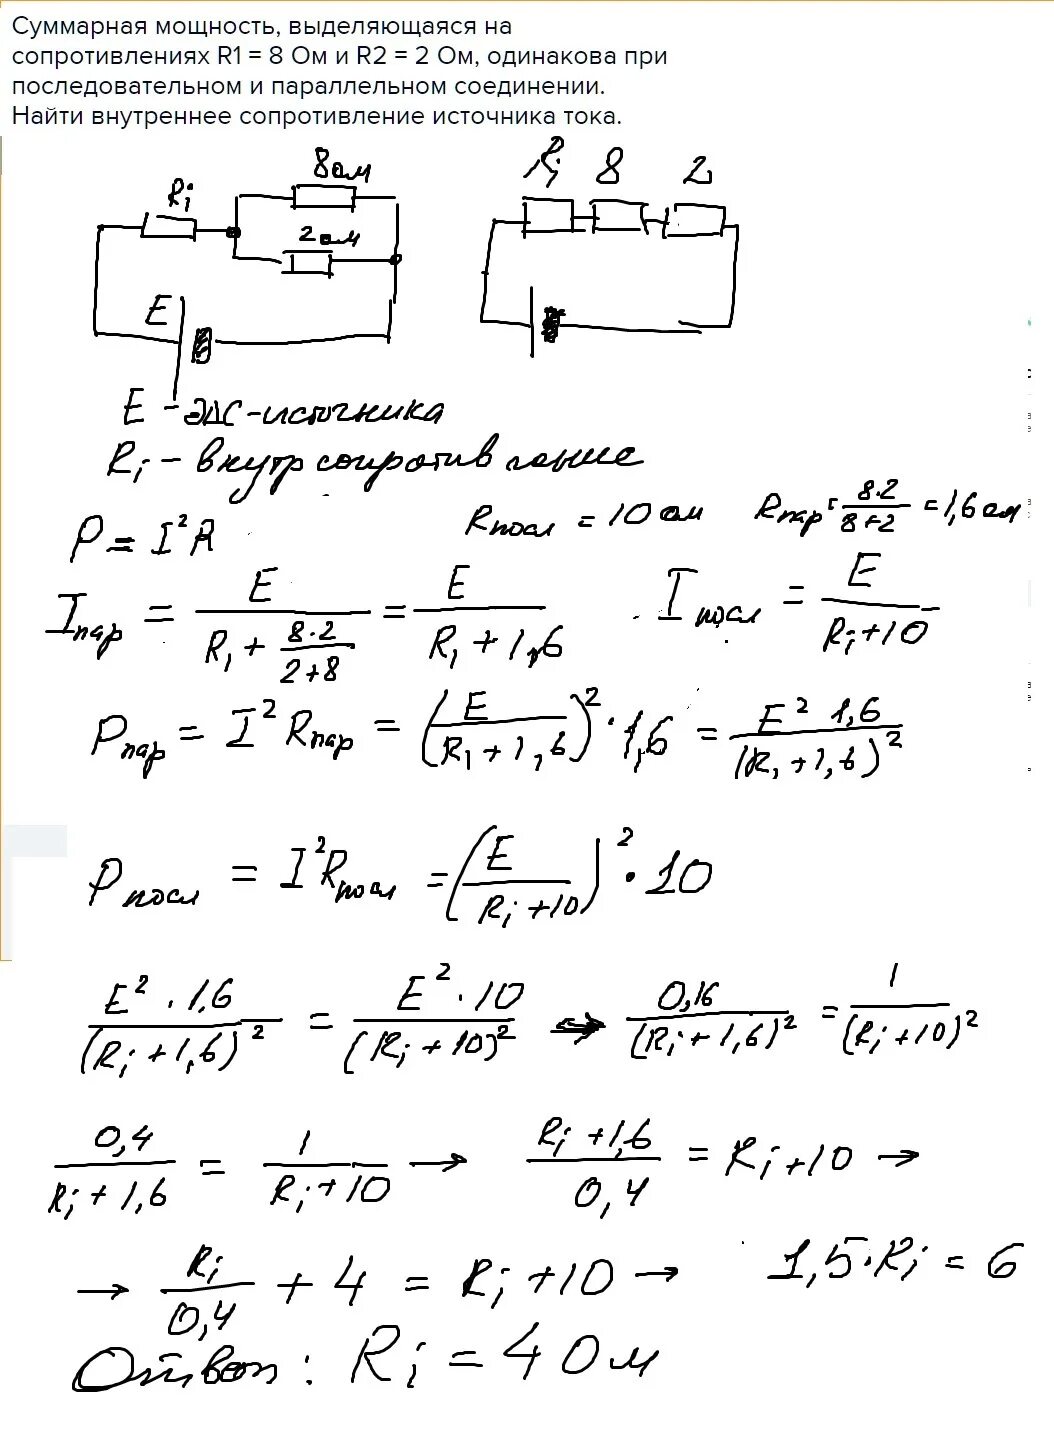 Суммарная мощность, выделяющаяся на
сопротивлениях R1 = 8 Ом и R2 = 2 Ом, одинакова при
последовательном и параллельном соединении.
Найти внутреннее сопротивление источника тока.
Ri 8ом 2ом E
Ri 8 2
E - ЭДС-источника
Ri - внутр сопротивление
P = I²R Rпосл = 10 ом Rпар = 8·2/8+2 = 1,6 ом
Iпар = E/(Ri + 8·2/2+8) = E/(Ri + 1,6) Iпосл = E/(Ri+10)
Pпар = I²Rпар = (E/(Ri+1,6))² · 1,6 = E² 1,6/(Ri+1,6)²
Pпосл = I²Rпосл = (E/(Ri+10))² · 10
E² · 1,6/(Ri+1,6)² = E² · 10/(Ri+10)² → 0,16/(Ri+1,6)² = 1/(Ri+10)²
0,4/(Ri+1,6) = 1/(Ri+10) → (Ri+1,6)/0,4 = Ri+10 →
→ Ri/0,4 + 4 = Ri+10 → 1,5·Ri = 6
Ответ: Ri = 4 Ом